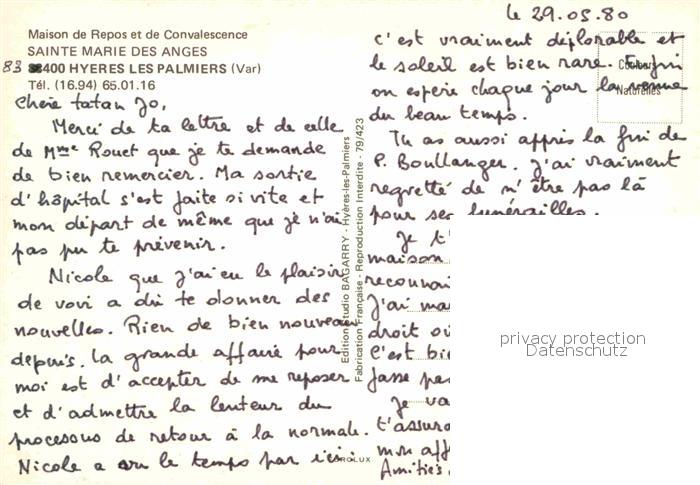 Maison de Repos et de Convalescence
SAINTE MARIE DES ANGES
83 400 HYERES LES PALMIERS (Var)
Tél. (16.94) 65.01.16
Chère tatan Jo,
Merci de ta lettre et de celle
de Mme Rouet que je te demande
de bien remercier. Ma sortie
d'hôpital s'est faite si vite et
mon départ de même que je n'ai
pas pu te prévenir.
Nicole que j'ai eu le plaisir
de voir a dû te donner des
nouvelles. Rien de bien nouveau
depuis. La grande affaire pour
moi est d'accepter de me reposer
et d'admettre la lenteur du
processus de retour à la normale.
Nicole a vu le temps par ici:
Edition Studio BAGARRY - Hyères-les-Palmiers
Fabrication Française - Reproduction Interdite - 79/423
le 29.05.80
c'est vraiment déplorable et
le soleil est bien rare. Enfin
on espère chaque jour la venue
du beau temps.
Couleurs
Naturelles
Tu as aussi appris la fin de
P. Boullanger. J'ai vraiment
regretté de n'être pas là
pour ses funérailles.
Je t'
maison
J'ai
droit
C'est
fasse
Je
t'assur
mon aff
Amitiés
privacy protection
Datenschutz